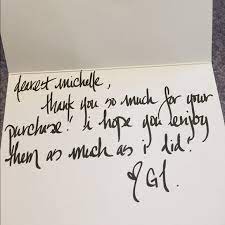 dearest michelle,
thank you so much for your
purchase! i hope you enjoy
them as much as i did!